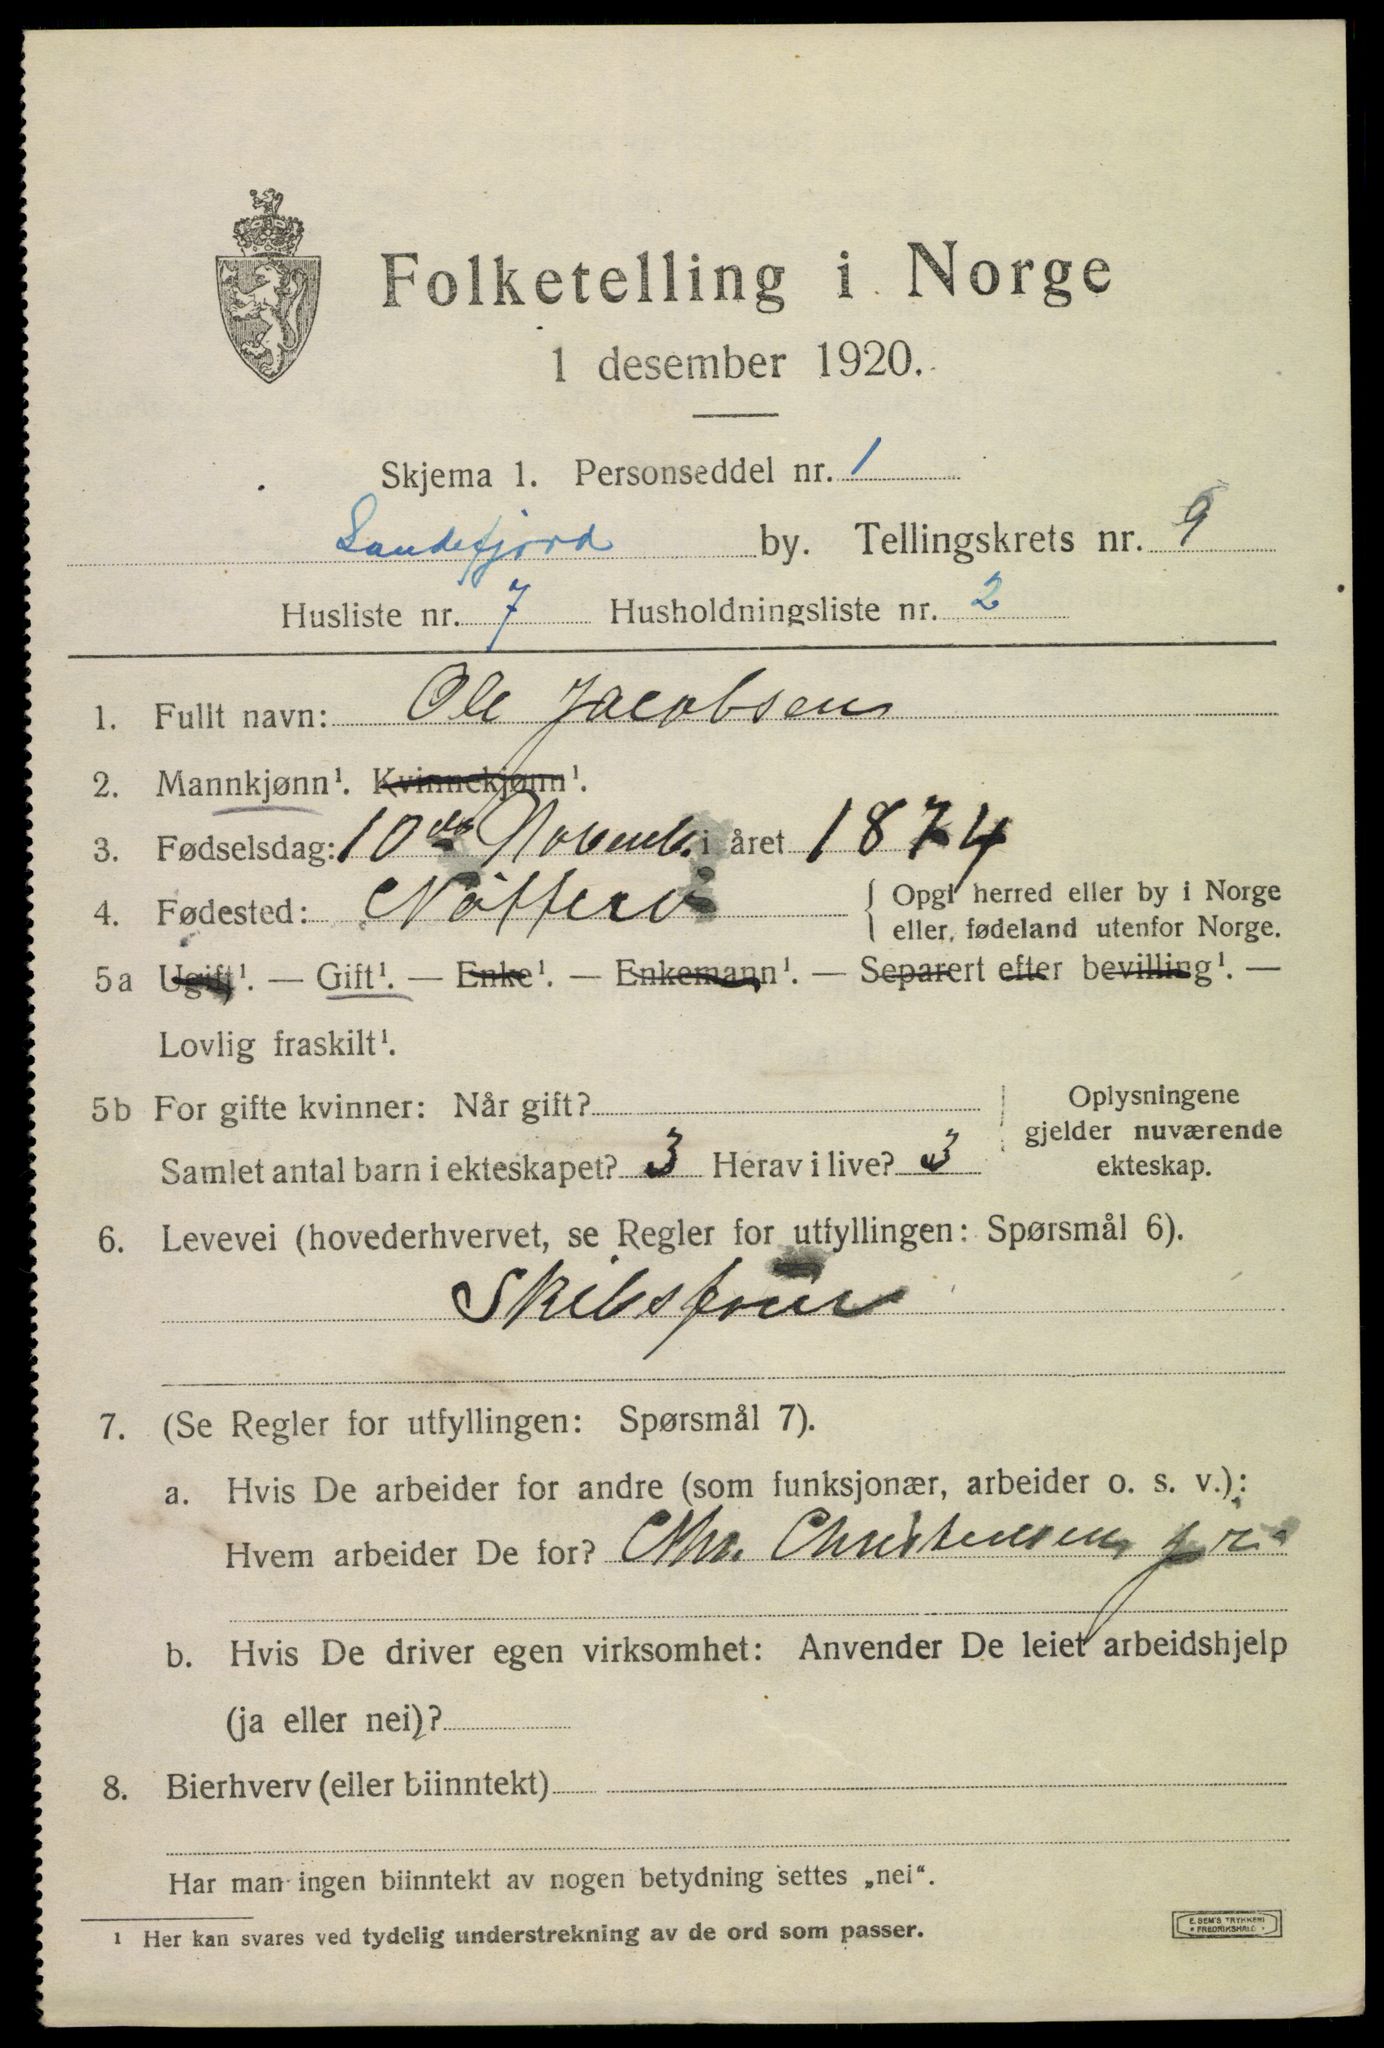 Folketelling i Norge
1 desember 1920.
Skjema 1. Personseddel nr. 1
Sandefjord by. Tellingskrets nr. 9
Husliste nr. 7 Husholdningsliste nr. 2
1. Fullt navn: Ole Jacobsen
2. Mannkjønn¹. Kvinnekjønn¹.
3. Fødselsdag: 10de Novemb. i året 1874
4. Fødested: Nötterö { Opgi herred eller by i Norge
eller, fødeland utenfor Norge.
5a Ugift¹. — Gift¹. — Enke¹. — Enkemann¹. — Separert efter bevilling¹. —
Lovlig fraskilt¹.
5b For gifte kvinner: Når gift? Oplysningene
gjelder nuværende
Samlet antal barn i ekteskapet? 3 Herav i live? 3 ekteskap.
6. Levevei (hovederhvervet, se Regler for utfyllingen: Spørsmål 6).
Skibsfører
7. (Se Regler for utfyllingen: Spørsmål 7).
a. Hvis De arbeider for andre (som funksjonær, arbeider o. s. v.):
Hvem arbeider De for? Chr. Christensen jr
b. Hvis De driver egen virksomhet: Anvender De leiet arbeidshjelp
(ja eller nei)?
8. Bierhverv (eller biinntekt)
Har man ingen biinntekt av nogen betydning settes „nei“.
¹ Her kan svares ved tydelig understrekning av de ord som passer.
E. SEM'S TRYKKERI
• FREDRIKSHALD •